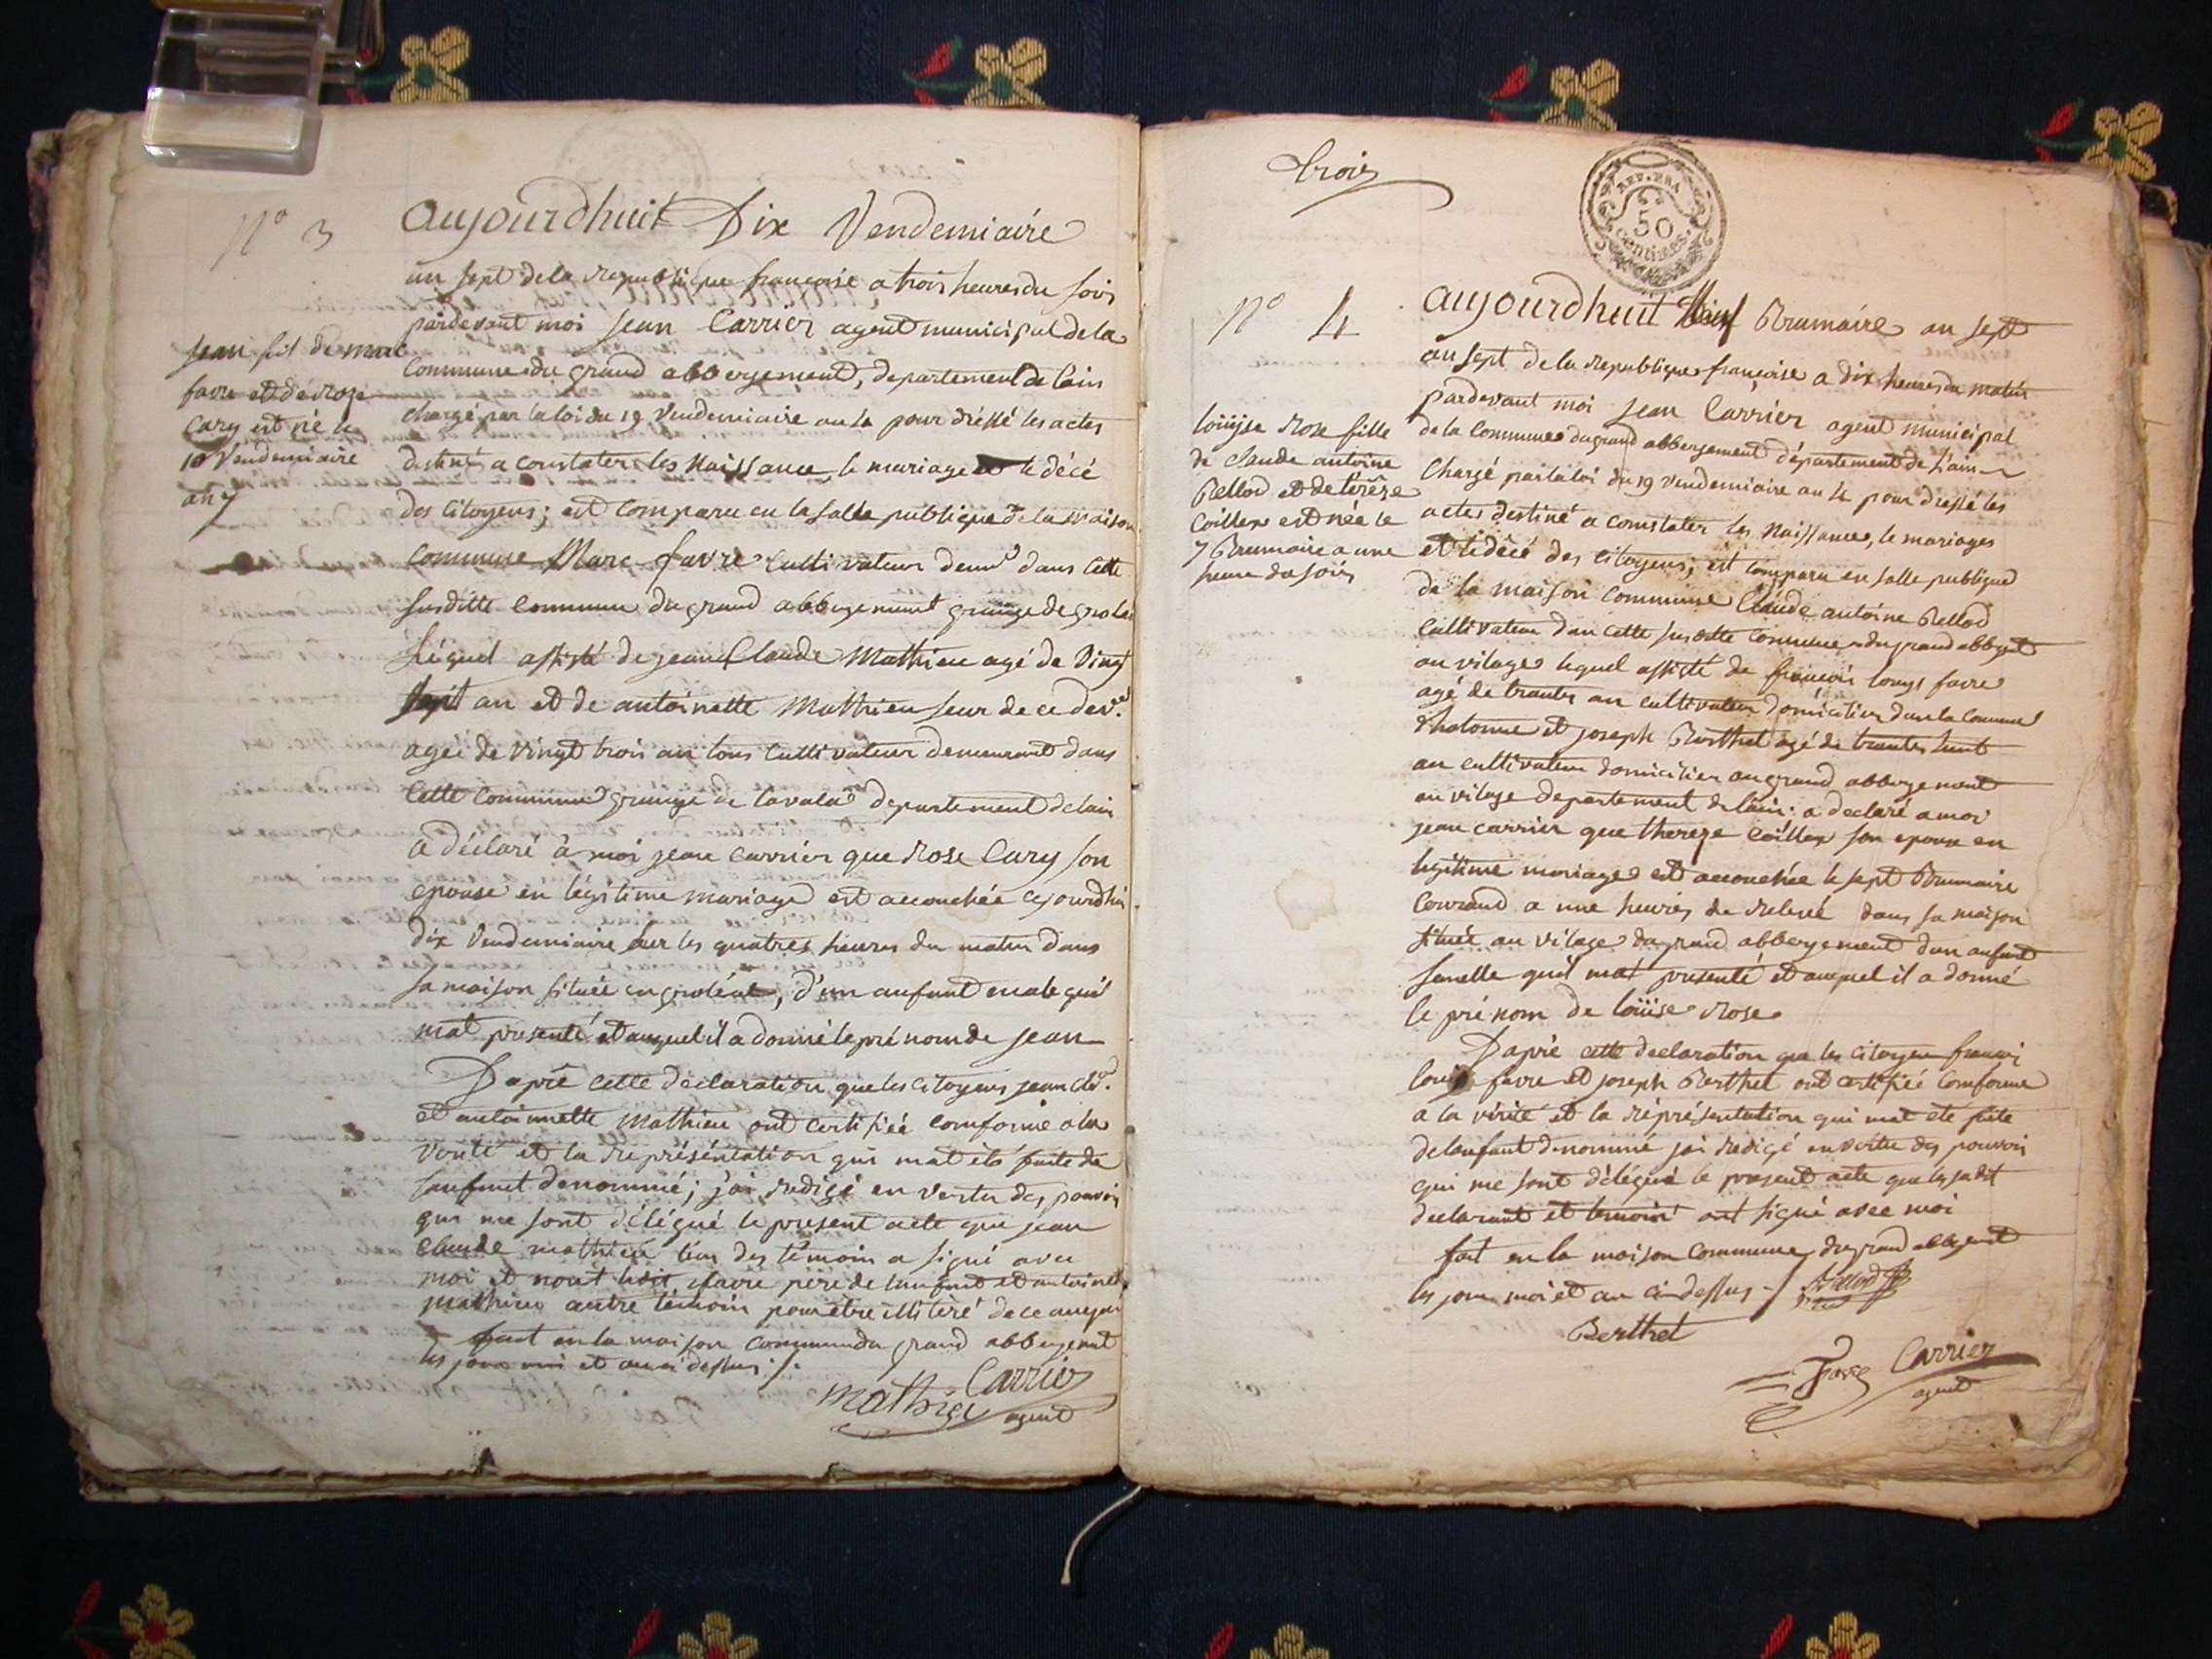 N° 3
Jean fil de marc
favre et de roze
Cary est né le
10 Vendemiaire
an 7
aujourdhuit Dix Vendemiaire
an sept de la republique francoise a trois heures du soir
pardevant moi Jean Carrier agent municipal de la
Commune du grand abbergement, departement de lain
chargé par la loi du 19 Vendemiaire an 4 pour dréssé les actes
destiné a constater les Naissance, le mariage et le décé
des Citoyens; est comparu en la salle publique de la maison
commune Marc favre cultivateur demt dans cette
susditte commune du grand abbergement grange de
Léquel assisté de jean Claude Mathieu agé de vingt
sept an et de antoinette Mathieu seur de ce der.
agée de vingt trois an tous cultivateur demeurant dans
cette commune grange de lavala departement de lain
a déclaré à moi jean carrier que Rose Cary son
epouse en légitime mariage est accouchée cejourdhui
dix Vendemiaire sur les quatres heures du matin dans
sa maison située en, d'un anfant male qui
mat presenté et auquel il a donné le pré nom de jean
Daprè cette declaration que les citoyens jean cl.
et antoinette Mathieu ont certifiéé comforme a la
verité et la représéntation qui mat été faite de
lanfant denommé; j'ai redigé en vertu des pouvoir
qui me sont délégué le present acte que jean
Claude mathieu lun des témoin a signé avec
moi et nont favre pere de lanfant et antoinet
Mathieu autre témoin pour être illiteré de ce
fait en la maison commune du grand abbergement
les jour moi et an ci dessus ./.
Carrier
Mathieu agent
trois
REP. FRA
50
CENTIMES.
N° 4
loüijse Rose fille
de Claude antoine
Bellod et de térèze
Coillex est née le
7 Brumaire a une
heure du soir
aujourdhuit Neuf Brumaire an sept
an sept de la republique françoise a dix heures du matin
pardevant moi Jean Carrier agent municipal
de la Commune du grand abbergement département de l'ain
Chargé par la loi du 19 vendemiaire an 4 pour dréssé les
actes destiné a constater les Naissances, le mariages
et le décé des citoyens; est comparu en salle publique
de la maison commune Claude antoine Bellod
cultivateur dan cette susditte commune du grand abbergt
au vilage lequel assisté de francois louys favre
agé de trantes an cultivateur domicilier dans la commune
dhotonne et joseph Berthet agé de trantes huit
an cultivateur domicilier au grand abbergement
au vilage departement de lain; a declaré a moi
jean carrier que thereze Coillex son epouse en
legitime mariage est accouchée le sept Brumaire
Courand a une heures de relevé dans sa maison
située au vilage du grand abbergement dun anfant
femelle quil mat presenté et auquel il a donné
le pré nom de loüise Rose
Daprè cette declaration que les citoyen francoi
louis favre et joseph Berthet ont certifiéé comforme
a la vérité et la répréséntation qui mat eté faite
de lanfant denommé jai redigé en vertu des pouvoir
qui me sont délégué le present acte que les sudit
declarant et temoin ont signé avec moi
fait en la maison commune du grand abbergement
les jour moi et an ci dessus ./. Bellod
Berthet
Favre Carrier
agent